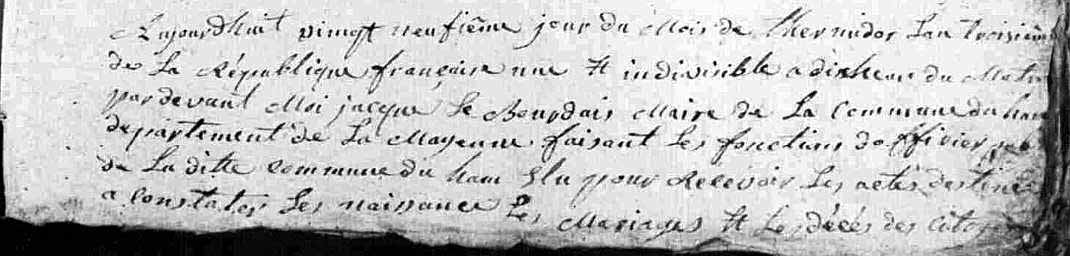 Aujourdhuit vingt neufième jour du Mois de thermidor Lan troisième
de La République française une & indivisible a dix heure du Matin
pardevant Moi jacque Le Bourdais Maire de La Commune du ham
département de La Mayenne faisant Les fonctions dofficier
de La ditte commune du ham Elu pour Recevoir Les actes destiné
a Constater Les naissance Les Mariages & Les décés des Citoy